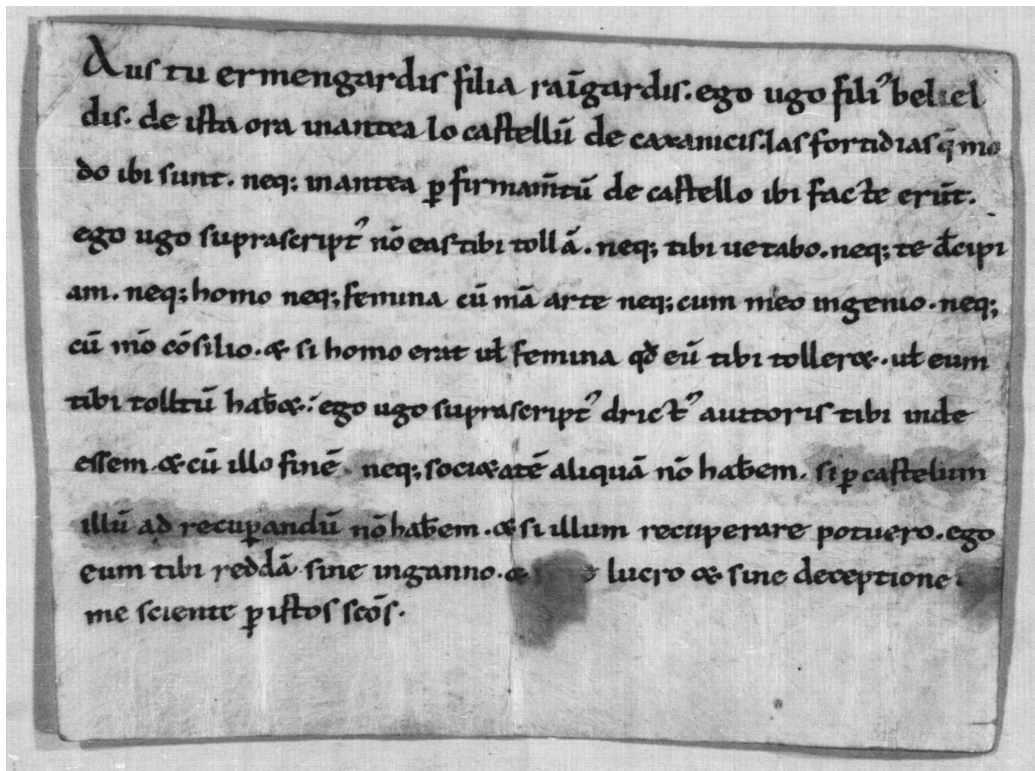 Aus tu ermengardis filia raīgardis. ego ugo fili᾿ beliel
dis. de ista ora inantea lo castellū de caxanicis. las fortidias q̄ mo
do ibi sunt. neq; inantea ꝑ firmam̄tū de castello ibi facte erūt.
ego ugo suprascript᾿ nō eas tibi tollā. neq; tibi uetabo. neq; te d̄cipi
am. neq; homo neq; femina cū mā arte neq; cum meo ingenio. neq;
cū mō cōsilio. & si homo erat uł femina qđ eū tibi toller&. uł eum
tibi tolltū hab&. ego ugo suprascript᾿ drict᾿ auitoris tibi inde
essem. & cū illo finē neq; soci&atē aliquā nō haƀem. si ꝑ castelum
illū ad recuꝑandū nō haƀem. & si illum recuperare potuero. ego
eum tibi reddā sine inganno. & lucro & sine deceptione
me sciente ꝑ istos scōs.